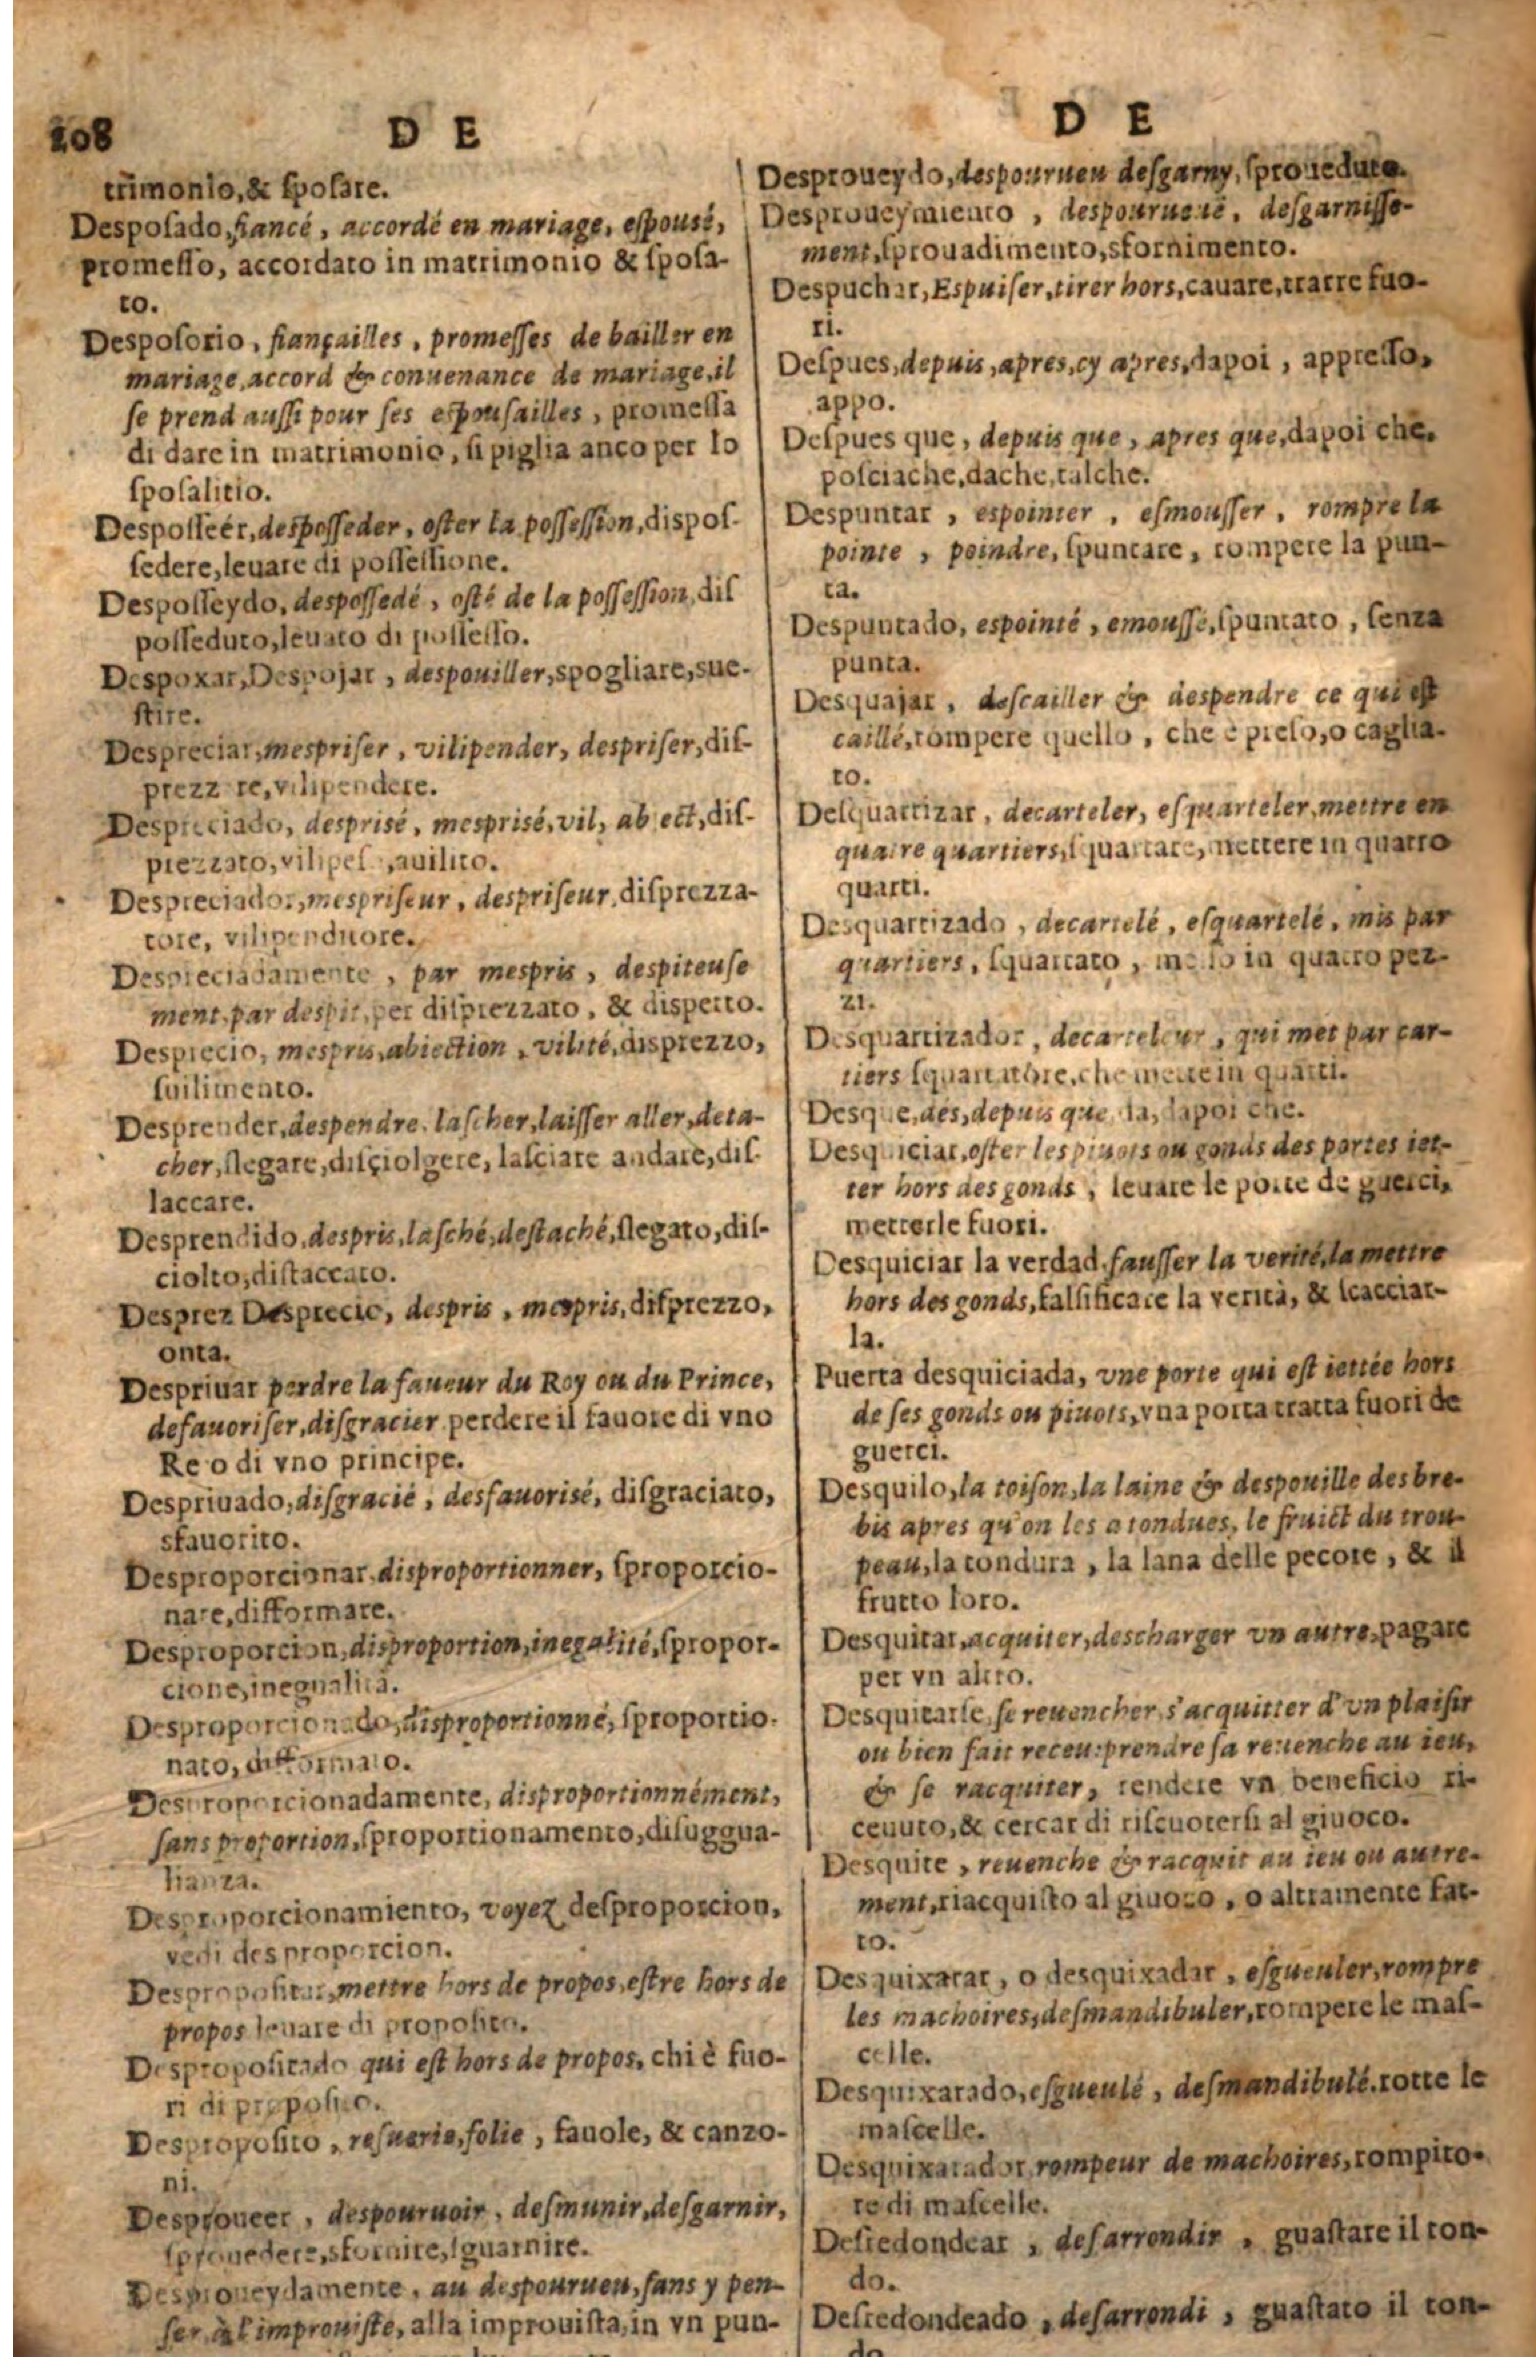 208 D E
trimonio, & sposare.
Desposado, fiancé, accordé en mariage, espousé,
promesso, accordato in matrimonio & sposa-
to.
Desposorio, fiançailles, promesses de bailler en
mariage, accord & conuenance de mariage, il
se prend aussi pour ses espousailles, promessa
di dare in matrimonio, si piglia anco per lo
sposalitio.
Desposseer, desposseder, oster la possession, dispos-
sedere, leuare di possessione.
Desposseydo, despossedé, osté de la possession, dis
posseduto, leuato di possesso.
Despoxar, Despojar, despouiller, spogliare, sue-
stire.
Despreciar, mespriser, vilipender, despriser, dis-
prezz re, vilipendere.
Despreciado, desprisé, mesprisé, vil, abiect, dis-
prezzato, vilipeso, auilito.
Despreciador, mespriseur, despriseur, disprezza-
tore, vilipenditore.
Despreciadamente, par mespris, despiteuse
ment, par despit, per disprezzato, & dispetto.
Desprecio, mespris, abiection, vilité, disprezzo,
suilimento.
Desprender, despendre, lascher, laisser aller, deta-
cher, slegare, disçiolgere, lasciare andare, dis-
laccare.
Desprendido, despris, lasché, destaché, slegato, dis-
ciolto, distaccato.
Desprez Desprecio, despris, mespris, disprezzo,
onta.
Despriuar perdre la faueur du Roy ou du Prince,
defauoriser, disgracier perdere il fauore di vno
Re o di vno principe.
Despriuado, disgracié, desfauorisé, disgraciato,
sfauorito.
Desproporcionar, disproportionner, sproporcio-
nare, difformare.
Desproporcion, disproportion, inegalité, spropor-
cione, inegualità.
Desproporcionado, disproportionné, sproportio-
nato, difformato.
Desproporcionadamente, disproportionnément,
sans proportion, sproportionamento, disuggua-
lianza.
Desproporcionamiento, voyez desproporcion,
vedi desproporcion.
Despropositar, mettre hors de propos, estre hors de
propos leuare di proposito.
Despropositado qui est hors de propos, chi è fuo-
ri di proposito.
Desproposito, resuerie, folie, fauole, & canzo-
ni.
Desproueer, despouruoir, desmunir, desgarnir,
sprouedere, sfornire, sguarnire.
Desproueydamente, au despourueu, sans y pen-
ser, à l'improuiste, alla improuista, in vn pun-
D E
Desproueydo, despourueu desgarny, sproueduto.
Desproueymiento, despourueuë, desgarnisse-
ment, sprouadimento, sfornimento.
Despuchar, Espuiser, tirer hors, cauare, trarre fuo-
ri.
Despues, depuis, apres, cy apres, dapoi, appresso,
appo.
Despues que, depuis que, apres que, dapoi che,
posciache, dache, talche.
Despuntar, espointer, esmousser, rompre la
pointe, poindre, spuntare, rompere la pun-
ta.
Despuntado, espointé, emoussé, spuntato, senza
punta.
Desquajar, descailler & despendre ce qui est
caillé, rompere quello, che è preso, o caglia-
to.
Desquartizar, decarteler, esquarteler, mettre en
quatre quartiers, squartare, mettere in quatro
quarti.
Desquartizado, decartelé, esquartelé, mis par
quartiers, squartato, messo in quatro pez-
zi.
Desquartizador, decarteleur, qui met par car-
tiers squartatore, che mette in quarti.
Desque, des, depuis que, da, dapoi che.
Desquiciar, oster les piuots ou gonds des portes iet-
ter hors des gonds, leuare le porte de guerci,
metterle fuori.
Desquiciar la verdad, fausser la verité, la mettre
hors des gonds, falsificare la verità, & scacciar-
la.
Puerta desquiciada, vne porte qui est iettée hors
de ses gonds ou piuots, vna porta tratta fuori de
guerci.
Desquilo, la toison, la laine & despouille des bre-
bis apres qu'on les a tondues, le fruict du trou-
peau, la tondura, la lana delle pecore, & il
frutto loro.
Desquitar, acquiter, descharger vn autre, pagare
per vn altro.
Desquitarse, se reuencher, s'acquitter d'vn plaisir
ou bien fait receu: prendre sa reuenche au ieu,
& se racquiter, rendere vn beneficio ri-
ceuuto, & cercar di riscuotersi al giuoco.
Desquite, reuenche & racquit au ieu ou autre-
ment, riacquisto al giuoco, o altramente fat-
to.
Desquixarar, o desquixadar, esgueuler, rompre
les machoires, desmandibuler, rompere le mas-
celle.
Desquixarado, esgueulé, desmandibulé, rotte le
mascelle.
Desquixarador rompeur de machoires, rompito-
re di mascelle.
Desredondear, desarrondir, guastare il ton-
do.
Desredondeado, desarrondi, guastato il ton-
do.